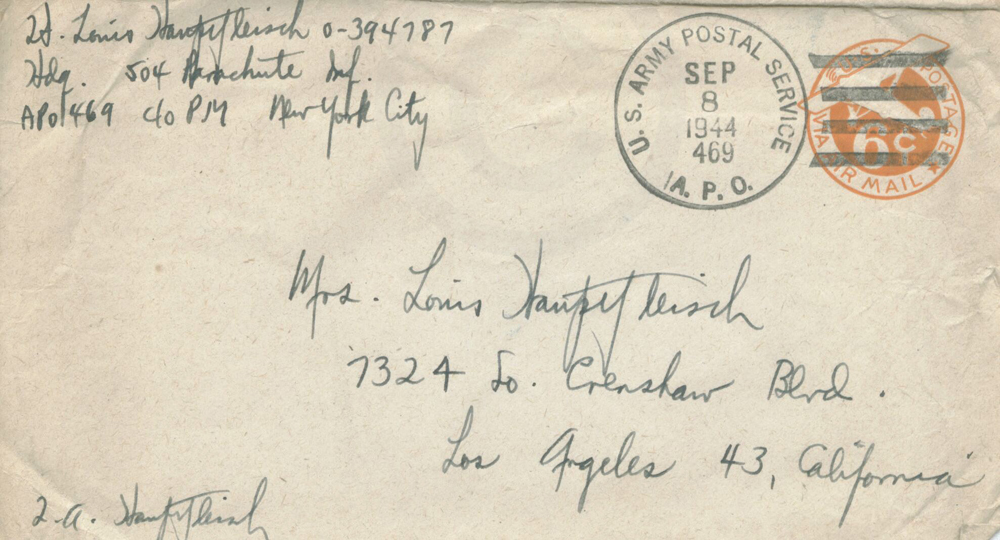 Lt. Louis Hauptfleisch O-394787
Hdq. 504 Parachute Inf.
APO 469 c/o P.M. New York City
U. S. ARMY POSTAL SERVICE
SEP
8
1944
469
A. P. O.
U.S. POSTAGE
6c
VIA AIR MAIL
Mrs. Louis Hauptfleisch
7324 So. Crenshaw Blvd.
Los Angeles 43, California
L.A. Hauptfleisch